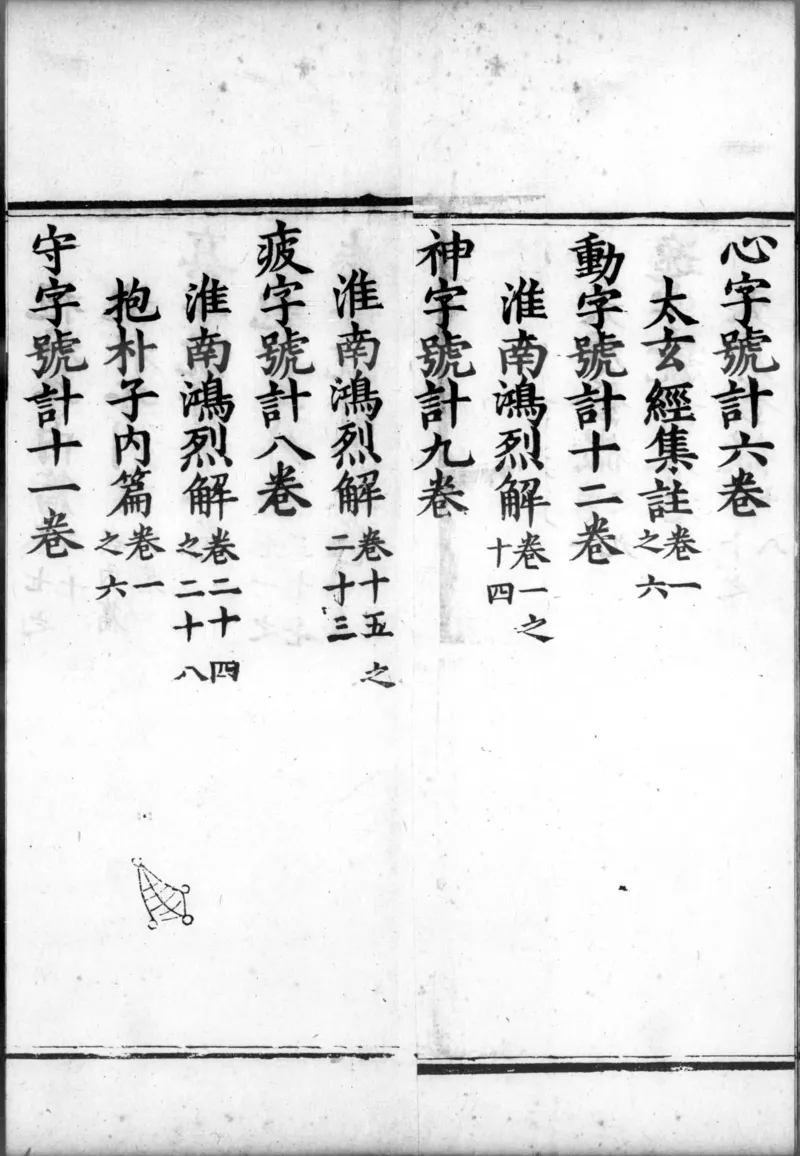 心字號計六卷
太玄經集註卷一之六
動字號計十二卷
淮南鴻烈解卷一之十四
神字號計九卷
淮南鴻烈解卷十五之二十三
疲字號計八卷
淮南鴻烈解卷二十四之二十八
抱朴子内篇卷一之六
守字號計十一卷